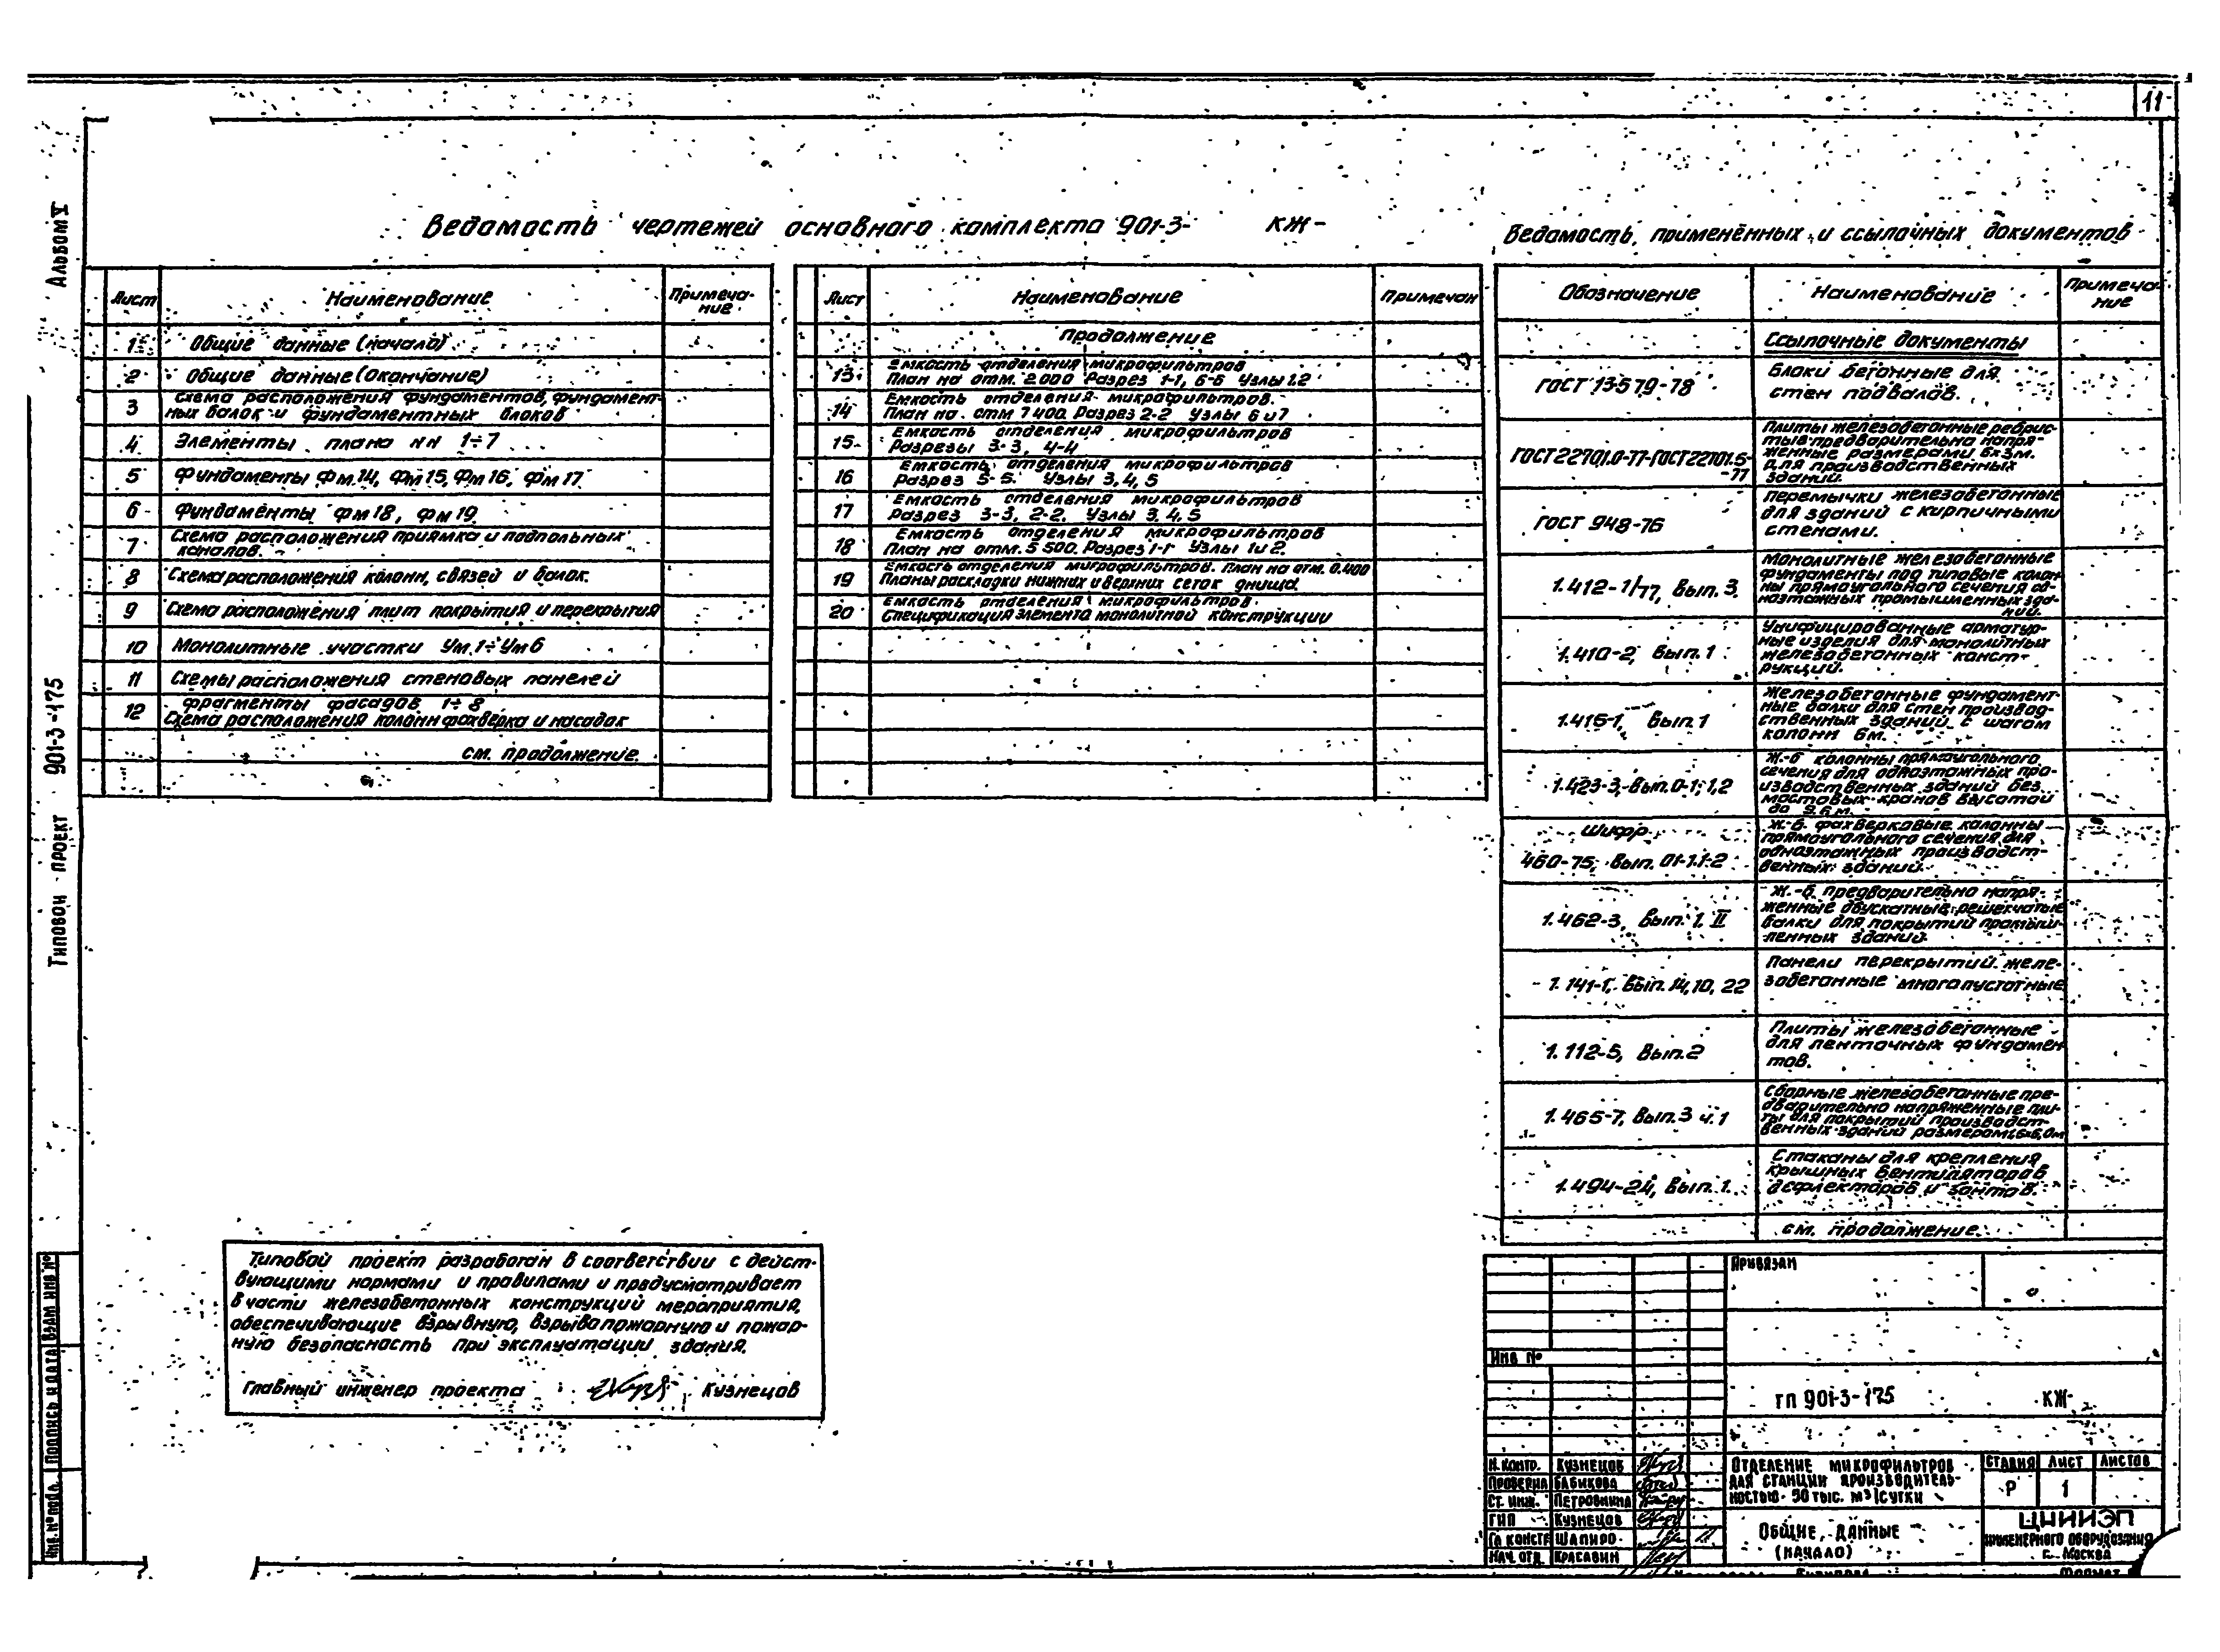 11
Альбом V
Типовой проект 901-3-175
Ведомость чертежей основного комплекта 901-3- КЖ-
Лист Наименование Примеча-
ние
1 Общие данные (начало)
2 Общие данные (окончание)
3 Схема расположения фундаментов, фундамент-
ных балок и фундаментных блоков
4 Элементы плана нн 1÷7
5 Фундаменты Фм14, Фм15, Фм16, Фм17
6 Фундаменты Фм18, Фм19
7 Схема расположения приямка и подпольных
каналов.
8 Схема расположения колонн, связей и балок.
9 Схема расположения плит покрытия и перекрытия
10 Монолитные участки Ум1÷Ум6
11 Схемы расположения стеновых панелей
12 Фрагменты фасадов 1÷8
Схема расположения колонн фахверка и насадок
см. продолжение.
Лист Наименование Примечан
Продолжение
13 Емкость отделения микрофильтров
План на отм. 2.000 Разрез 1-1, 6-6 Узлы 1.2
14 Емкость отделения микрофильтров.
План на отм 7.400. Разрез 2-2 Узлы 6 и 7
15 Емкость отделения микрофильтров
Разрезы 3-3, 4-4
16 Емкость отделения микрофильтров
Разрез 5-5. Узлы 3, 4, 5
17 Емкость отделения микрофильтров
Разрез 3-3, 2-2. Узлы 3, 4, 5
18 Емкость отделения микрофильтров
План на отм. 5.500. Разрез 1-1 Узлы 1 и 2.
19 Емкость отделения микрофильтров. План на отм. 0.400
Планы раскладки нижних и верхних сеток днища.
20 Емкость отделения микрофильтров.
Спецификация элемента монолитной конструкции
Ведомость применённых и ссылочных документов
Обозначение Наименование Примеча-
ние
Ссылочные документы
ГОСТ 13579-78 Блоки бетонные для
стен подвалов.
ГОСТ 22701.0-77-ГОСТ 22701.5-
-77 Плиты железобетонные ребрис-
тые предварительно напря-
женные размерами 6х3м.
для производственных
зданий.
ГОСТ 948-76 Перемычки железобетонные
для зданий с кирпичными
стенами.
1.412-1/77, Вып. 3. Монолитные железобетонные
фундаменты под типовые колон-
ны прямоугольного сечения од-
ноэтажных промышленных зда-
ний.
1.410-2, Вып. 1 Унифицированные арматур-
ные изделия для монолитных
железобетонных конст-
рукций.
1.415-1, Вып. 1 Железобетонные фундамент-
ные балки для стен производ-
ственных зданий с шагом
колонн 6м.
1.423-3, Вып. 0-1, 1,2 Ж.-б колонны прямоугольного
сечения для одноэтажных про-
изводственных зданий без
мостовых кранов высотой
до 9.6м.
Шифр
460-75, Вып. 01-1.1-2 Ж.-б. фахверковые колонны
прямоугольного сечения для
одноэтажных производст-
венных зданий.
1.462-3, Вып. 1. II Ж.-б. предварительно напря-
женные двускатные решетчатые
балки для покрытий промыш-
ленных зданий.
1.141-1, Вып. 14, 10, 22 Панели перекрытий желе-
зобетонные многопустотные
1.112-5, Вып. 2 Плиты железобетонные
для ленточных фундамен
тов.
1.465-7, Вып. 3 ч. 1 Сборные железобетонные пре-
дварительно напряженные пли-
ты для покрытий производст-
венных зданий размером 1,5х6,0м
1.494-24, Вып. 1. Стаканы для крепления
крышных вентиляторов
дефлекторов и зонтов.
см. продолжение.
Типовой проект разработан в соответствии с дейст-
вующими нормами и правилами и предусматривает
в части железобетонных конструкций мероприятия,
обеспечивающие взрывную, взрывопожарную и пожар-
ную безопасность при эксплуатации здания.
Главный инженер проекта Кузнецов
Привязан
Инв №
ТП 901-3-175 КЖ-
Н. контр. Кузнецов
Проверил Бабикова
Ст. инж. Петровкина
ГИП Кузнецов
Гл констр Шапиро
Нач. отд Красавин
Отделение микрофильтров
для станции производитель-
ностью 50 тыс. м³/сутки
Стадия Лист Листов
Р 1
Общие данные
(начало)
ЦНИИЭП
инженерного оборудования
г. Москва
Формат
Инв. № подл. Подпись и дата Взам инв №